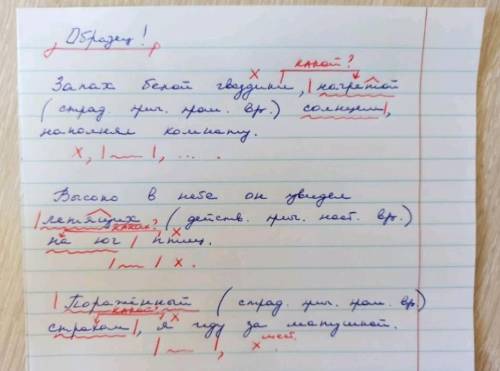 Образец!
какой?
х
Запах белой гвоздики, нагретой
(страд. прич. прош. вр.) солнцем,
наполнял комнату.
х, |﹏|, ... .
Высоко в небе он увидел
летящих (действ. прич. наст. вр.)
каких? х
на юг птиц.
|﹏| х.
Поражённый (страд. прич. прош. вр)
какой? х
страхом, я иду за матушкой.
|﹏|, х мест.